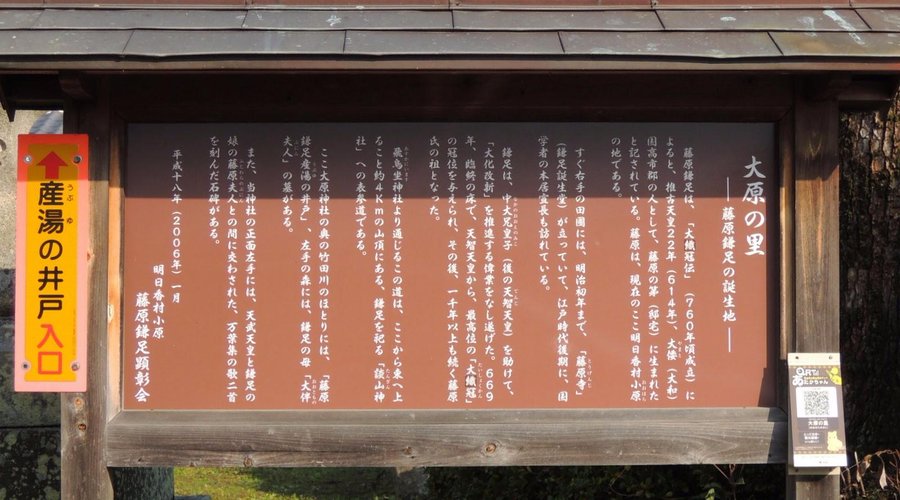 大原の里
――藤原鎌足の誕生地――
藤原鎌足は、「大織冠伝」(760年頃成立)に
よると、推古天皇22年(614年)、大倭(大和)
国高市郡の人として、藤原の第(邸宅)に生まれた
と記されている。藤原は、現在のここ明日香村小原
の地である。
すぐ右手の田圃には、明治初年まで、「藤原寺」
(鎌足誕生堂)が立っていて、江戸時代後期に、国
学者の本居宣長も訪れている。
鎌足は、中大兄皇子(後の天智天皇)を助けて、
「大化改新」を推進する偉業をなし遂げた。669
年、臨終の床で、天智天皇から、最高位の「大織冠」
の冠位を与えられ、その後、一千年以上も続く藤原
氏の祖となった。
飛鳥坐神社より通じるこの道は、ここから東へ上
ること約4Kmの山頂にある、鎌足を祀る「談山神
社」への表参道である。
ここ大原神社の奥の竹田川のほとりには、「藤原
鎌足産湯の井戸」、左手の森には、鎌足の母「大伴
夫人」の墓がある。
また、当神社の正面左手には、天武天皇と鎌足の
娘の藤原夫人との間に交わされた、万葉集の歌二首
を刻んだ石碑がある。
平成十八年(2006年)一月
明日香村小原
藤原鎌足顕彰会
産湯の井戸入口
うぶゆ
QR
大原の里